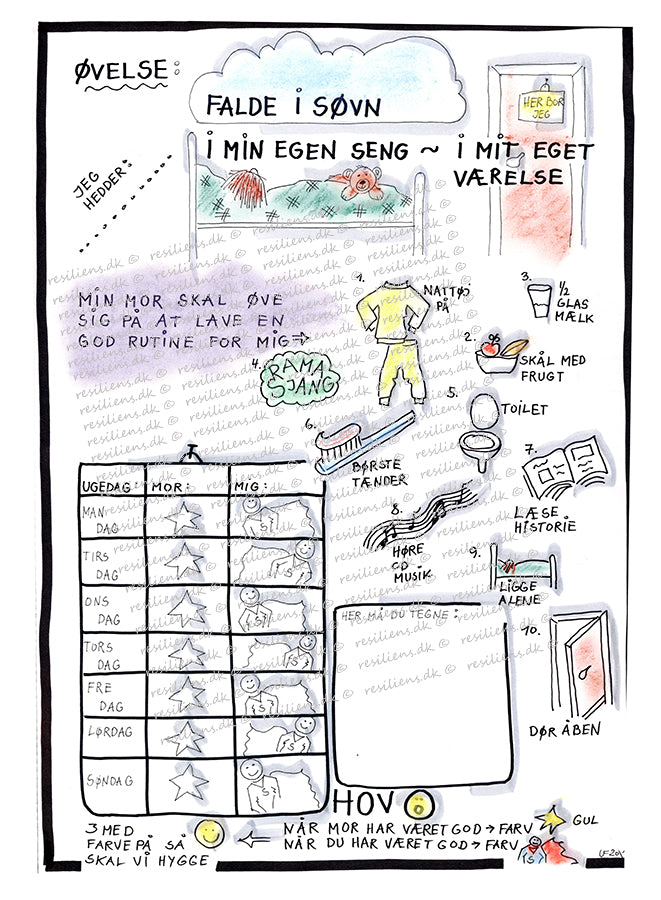 ØVELSE:
FALDE I SØVN
I MIN EGEN SENG ~ I MIT EGET
VÆRELSE
HER BOR
JEG
JEG
HEDDER:
MIN MOR SKAL ØVE
SIG PÅ AT LAVE EN
GOD RUTINE FOR MIG
1.
NATTØJ
PÅ
2.
SKÅL MED
FRUGT
3.
1/2
GLAS
MÆLK
4.
RAMA
SJANG
5.
TOILET
6.
BØRSTE
TÆNDER
7.
LÆSE
HISTORIE
8.
HØRE
CD-
MUSIK
9.
LIGGE
ALENE
10.
DØR ÅBEN
UGEDAG: MOR: MIG:
MAN
DAG
TIRS
DAG
ONS
DAG
TORS
DAG
FRE
DAG
LØRDAG
SØNDAG
S
S
S
S
S
S
S
HER MÅ DU TEGNE:
HOV
3 MED
FARVE PÅ SÅ
SKAL VI HYGGE
NÅR MOR HAR VÆRET GOD → FARV GUL
NÅR DU HAR VÆRET GOD → FARV
S
resiliens.dk ©